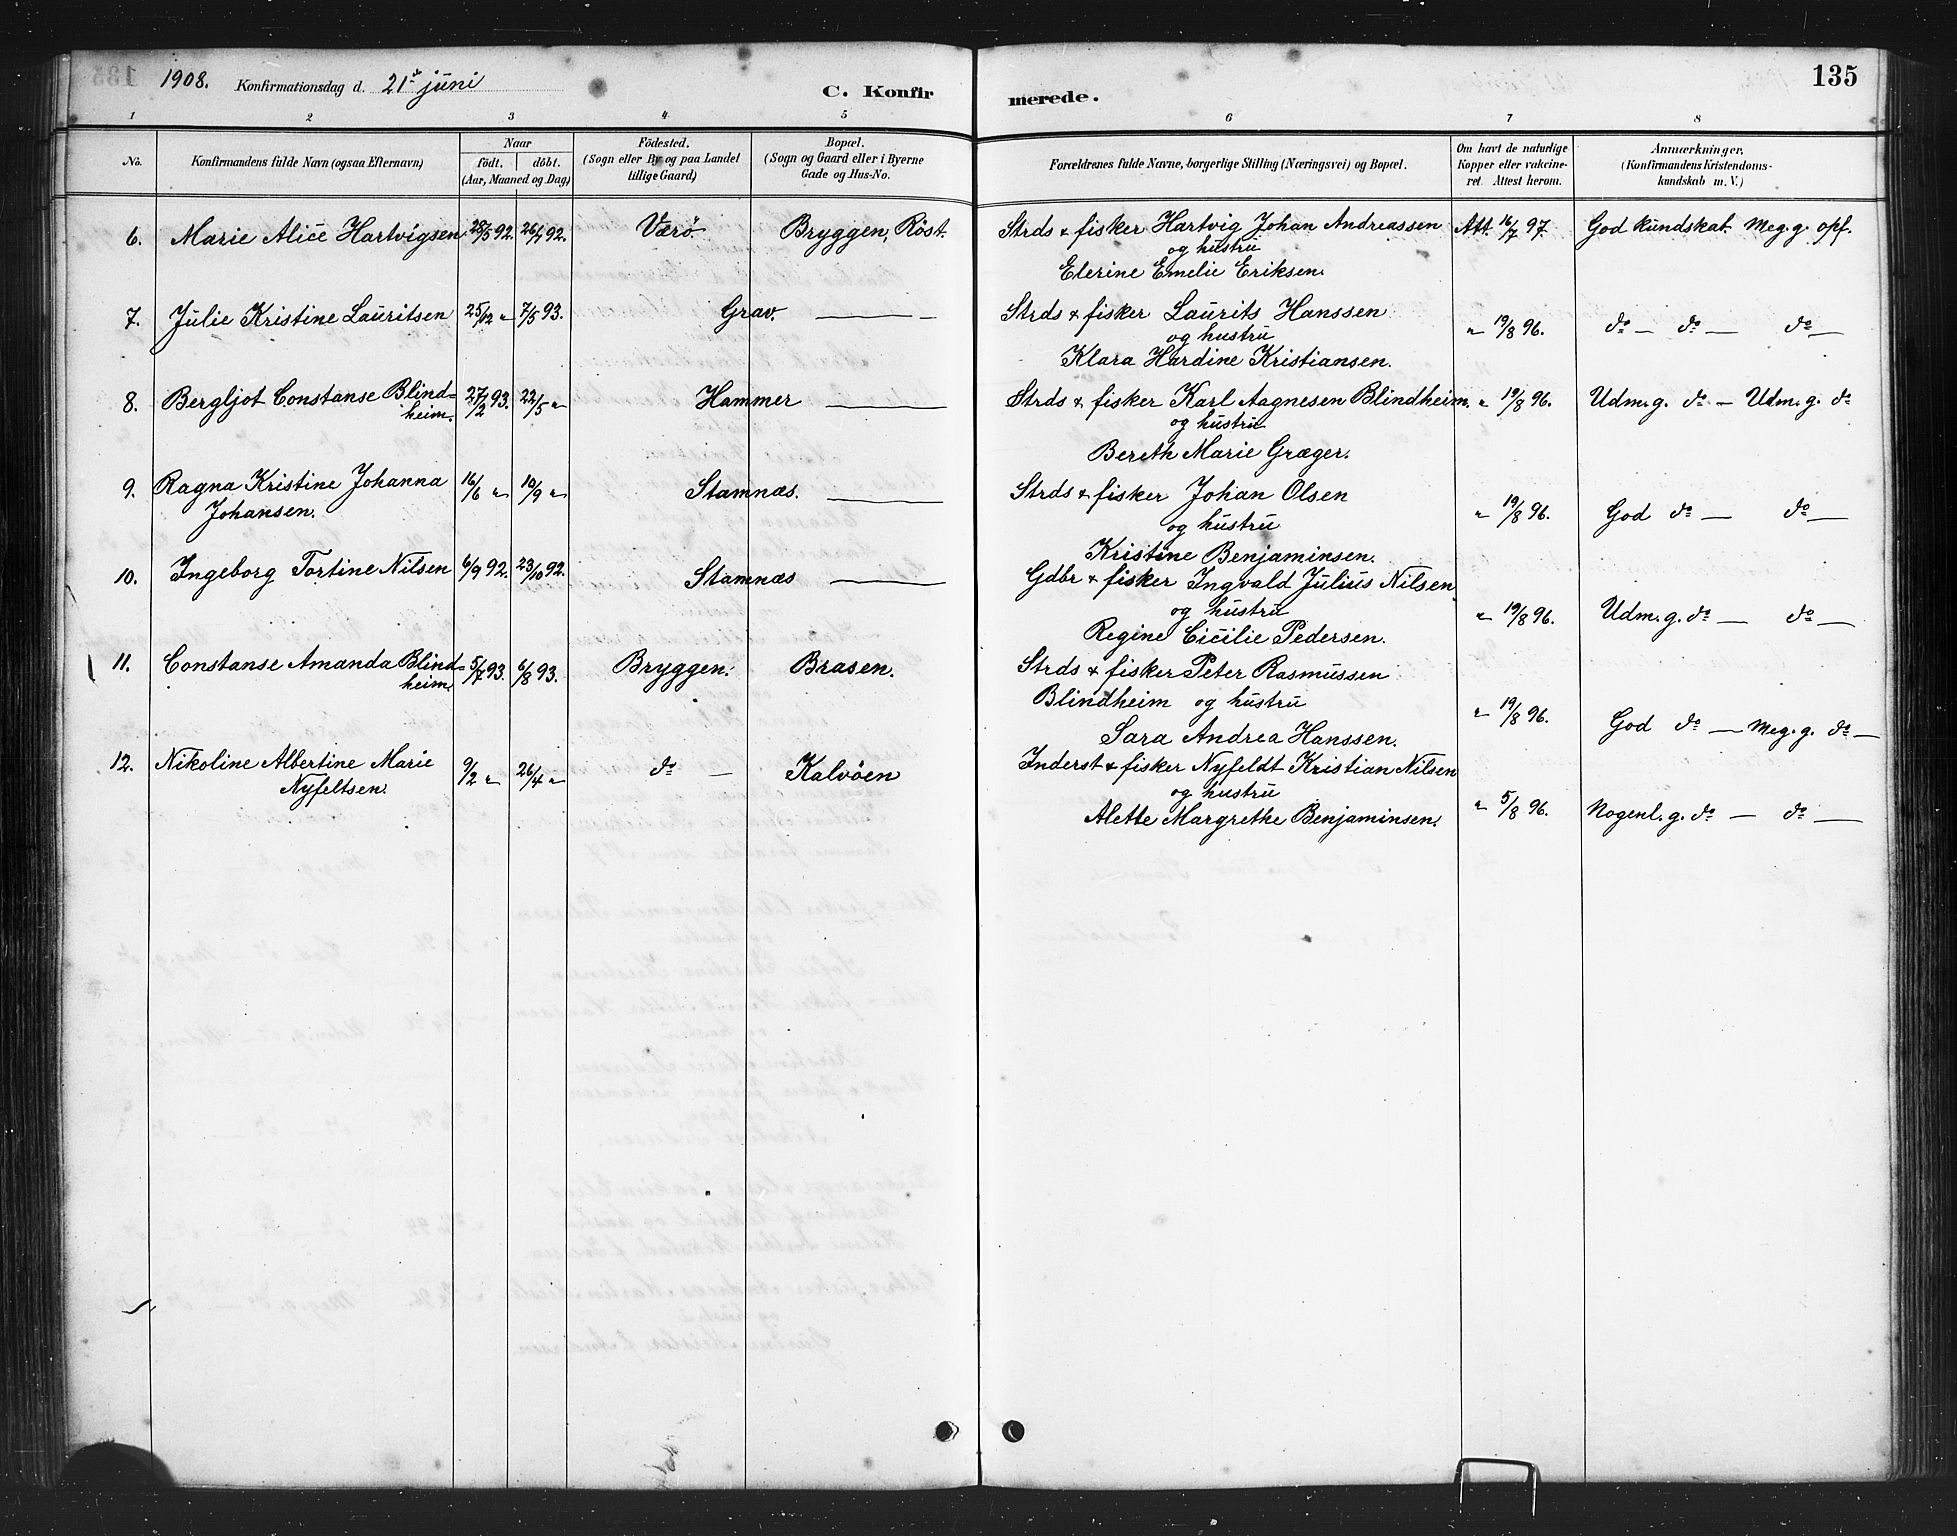 1908. Konfirmationsdag d. 21de juni C. Konfirmerede. 135
1 2 3 4 5 6 7 8
No. Konfirmandens fulde Navn (ogsaa Efternavn) Naar født. døbt. (Aar, Maaned og Dag) Fødested. (Sogn eller By og paa Landet tillige Gaard) Bopæl. (Sogn og Gaard eller i Byerne Gade og Hus-No. Forældrenes fulde Navne, borgerlige Stilling (Næringsvei) og Bopæl. Om havt de naturlige Kopper eller vakcineret. Attest herom. Anmærkninger. (Konfirmandens Kristendomskundskab m. V.)
6. Marie Alice Hartvigsen 92. 92. Værö Bryggen, Röst. Strds & fisker Hartvig Johan Andreassen Att 16/7 97 God kundskab Meg. g. opf.
og hustru
Elerine Emelie Eriksen.
7. Julie Kristine Lauritsen 25/12 " 7/5 93. Grav. — Strds & fisker Laurits Hanssen
og hustru " 19/8 96. do — do — do —
Klara Hardine Kristiansen.
8. Bergljot Constanse Blind= 27/2 93. 22/5 " Hammer — Strds & fisker Karl Aagnesen Blindheim. " 19/8 96. Udm. g. do — Udm. g. do
heim. og hustru
Bereth Marie Græger.
9. Ragna Kristine Johanna 16/6 " 10/9 " Stamnæs. — Strds & fisker Johan Olsen
Johansen. og hustru " 19/8 96. God do — do —
Kristine Benjaminsen.
10. Ingeborg Tortine Nilsen 6/9 92. 23/10 92. Stamnæs — Gdbr & fisker Ingvald Julius Nilsen
og hustru " 19/8 96. Udm. g. do — do —
Regine Cicilie Pedersen.
11. Constanse Amanda Blind= 5/7 93. 6/8 93. Bryggen. Brasen. Strds & fisker Peter Rasmussen
heim. Blindheim og hustru " 19/8 96. God do — Meg. g. do —
Sara Andrea Hanssen.
12. Nikoline Albertine Marie 9/2 " 26/4 " do — Kalvöen Inderst & fisker Nyfeldt Kristian Nilsen
Nyfeltsen. og hustru " 5/8 96. Nogenl. g. do — do —
Alette Margrethe Benjaminsen.